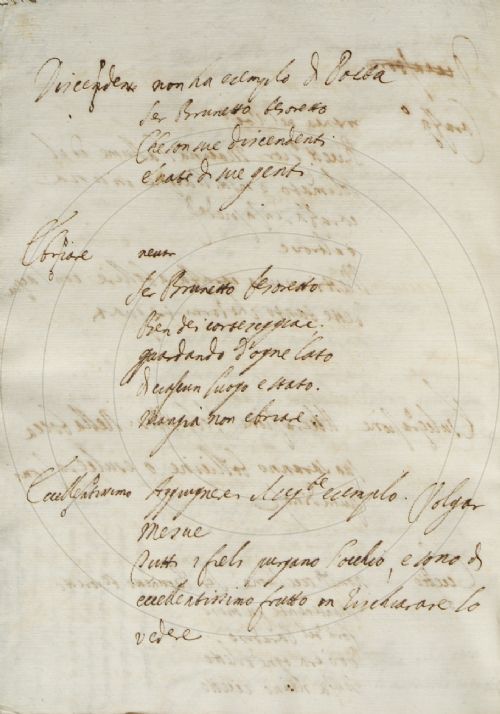 Discendenti non ha esemplo di Poeta
Ser Brunetto tesoretto
Che son sue discendenti
e nate di sue genti
Ebriare neutr
Ser Brunetto tesoretto
Ben dei corteseggiar
guardando d'ogne lato
di ciascun luogo e stato.
mangia non ebriare.
Eccellentissimo Aggiugner esemplo. Volgar
Mesue
Tutti i fieli purgano l'occhio, e sono di
eccellentissimo frutto in rischiarare lo
vedere